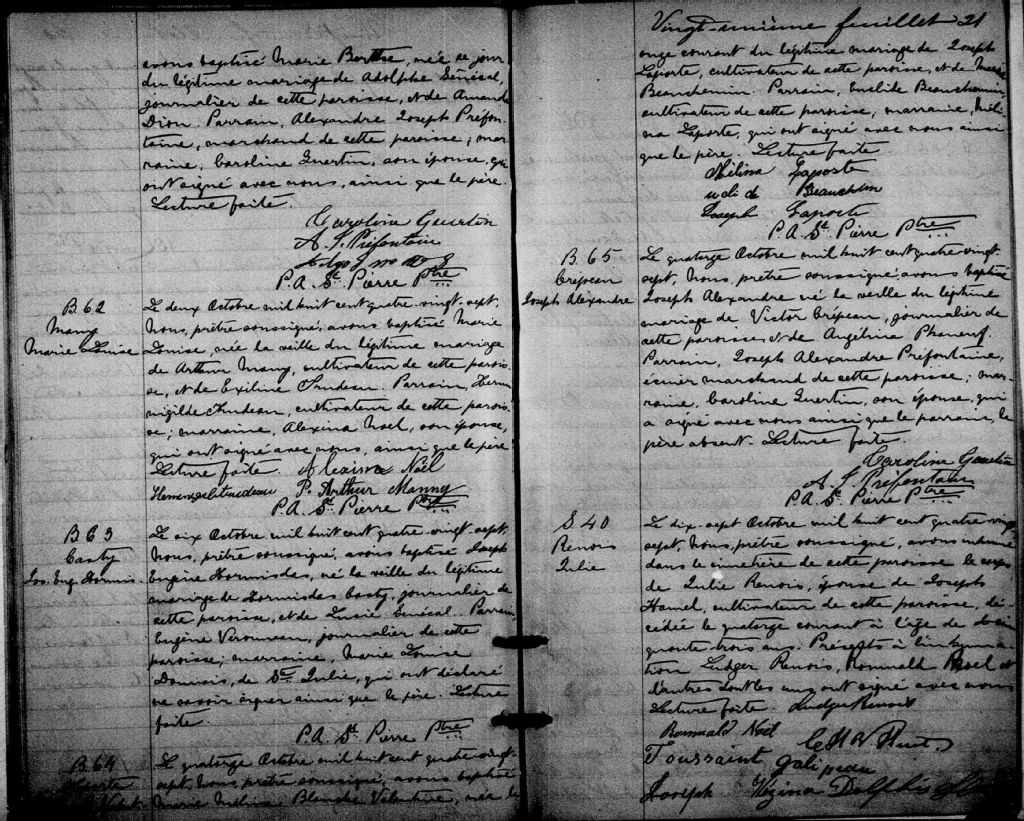 avons baptisé Marie Berthe, née ce jour
du légitime mariage de Adolphe Sénécal,
journalier de cette paroisse, et de Amanda
Dion. Parrain, Alexandre Joseph Préfon-
taine, marchand de cette paroisse; mar-
raine, Caroline Guertin, son épouse, qui
ont signé avec nous, ainsi que le père.
Lecture faite.
Caroline Guertin
A. J. Préfontaine
P.A. St. Pierre Ptre
B. 62
Many
Marie Louise
Le deux Octobre mil huit cent quatre-vingt-sept,
Nous, prêtre soussigné, avons baptisé Marie
Louise, née la veille du légitime mariage
de Arthur Many, cultivateur de cette parois-
se, et de Exilina Trudeau. Parrain, Herme-
négilde Trudeau, cultivateur de cette parois-
se; marraine, Alexina Noel, son épouse,
qui ont signé avec nous, ainsi que le père
Lecture faite. Alexina Noël
P. Arthur Manny
P.A. St. Pierre Ptre
B. 63
Casty
Jos. Eug. Hormis.
Le six Octobre mil huit cent quatre-vingt-sept,
Nous, prêtre soussigné, avons baptisé Joseph
Eugène Hormisdas, né la veille du légitime
mariage de Hormisdas Casty, journalier de
cette paroisse, et de Lucie Sénécal. Parrain
Eugène Veronneau, journalier de cette
paroisse; marraine, Marie Louise
de Ste Julie, qui ont déclaré
ne savoir signer ainsi que le père. Lecture
faite.
P.A. St. Pierre Ptre
B. 64
Le quatorze Octobre mil huit cent quatre-vingt-
sept, Nous, prêtre soussigné, avons baptisé
Marie Mélina Blanche Valentine, née le
Vingt-unième feuillet 21
onze courant du légitime mariage de Joseph
Laporte, cultivateur de cette paroisse, et de Marie
Beauchemin. Parrain, Euclide Beauchemin,
cultivateur de cette paroisse; marraine, Méli-
na Laporte, qui ont signé avec nous ainsi
que le père. Lecture faite.
Mélina Laporte
Beauchemin
Joseph Laporte
P.A. St. Pierre Ptre
B. 65
Crépeau
Joseph Alexandre
Le quatorze Octobre mil huit cent quatre-vingt-
sept, Nous, prêtre soussigné, avons baptisé
Joseph Alexandre né la veille du légitime
mariage de Victor Crépeau, journalier de
cette paroisse et de Angélina Phaneuf.
Parrain, Joseph Alexandre Préfontaine,
marchand de cette paroisse; mar-
raine, Caroline Guertin, son épouse, qui
a signé avec nous ainsi que le parrain, le
père absent. Lecture faite.
Caroline Guertin
A. J. Préfontaine
P.A. St. Pierre Ptre
S 40
Renois
Julie
Le dix-sept Octobre mil huit cent quatre-vingt-
sept, Nous, prêtre soussigné, avons inhumé
dans le cimetière de cette paroisse le corps
de Julie Renois, épouse de Joseph
Hamel, cultivateur de cette paroisse, dé-
cédée le quatorze courant à l'âge de cin-
quante trois ans. Présents à l'inhuma-
tion Ludger Renois, Romuald Noel et
d'autres dont les uns ont signé avec nous
Lecture faite. Ludger Renois
Romuald Noël
Toussaint Galipeau
Joseph Vézina Delphis